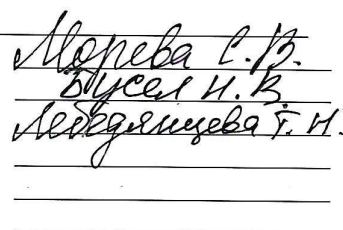 Морева С.В.
Бусел Н.В.
Лебедянцева Т.Н.